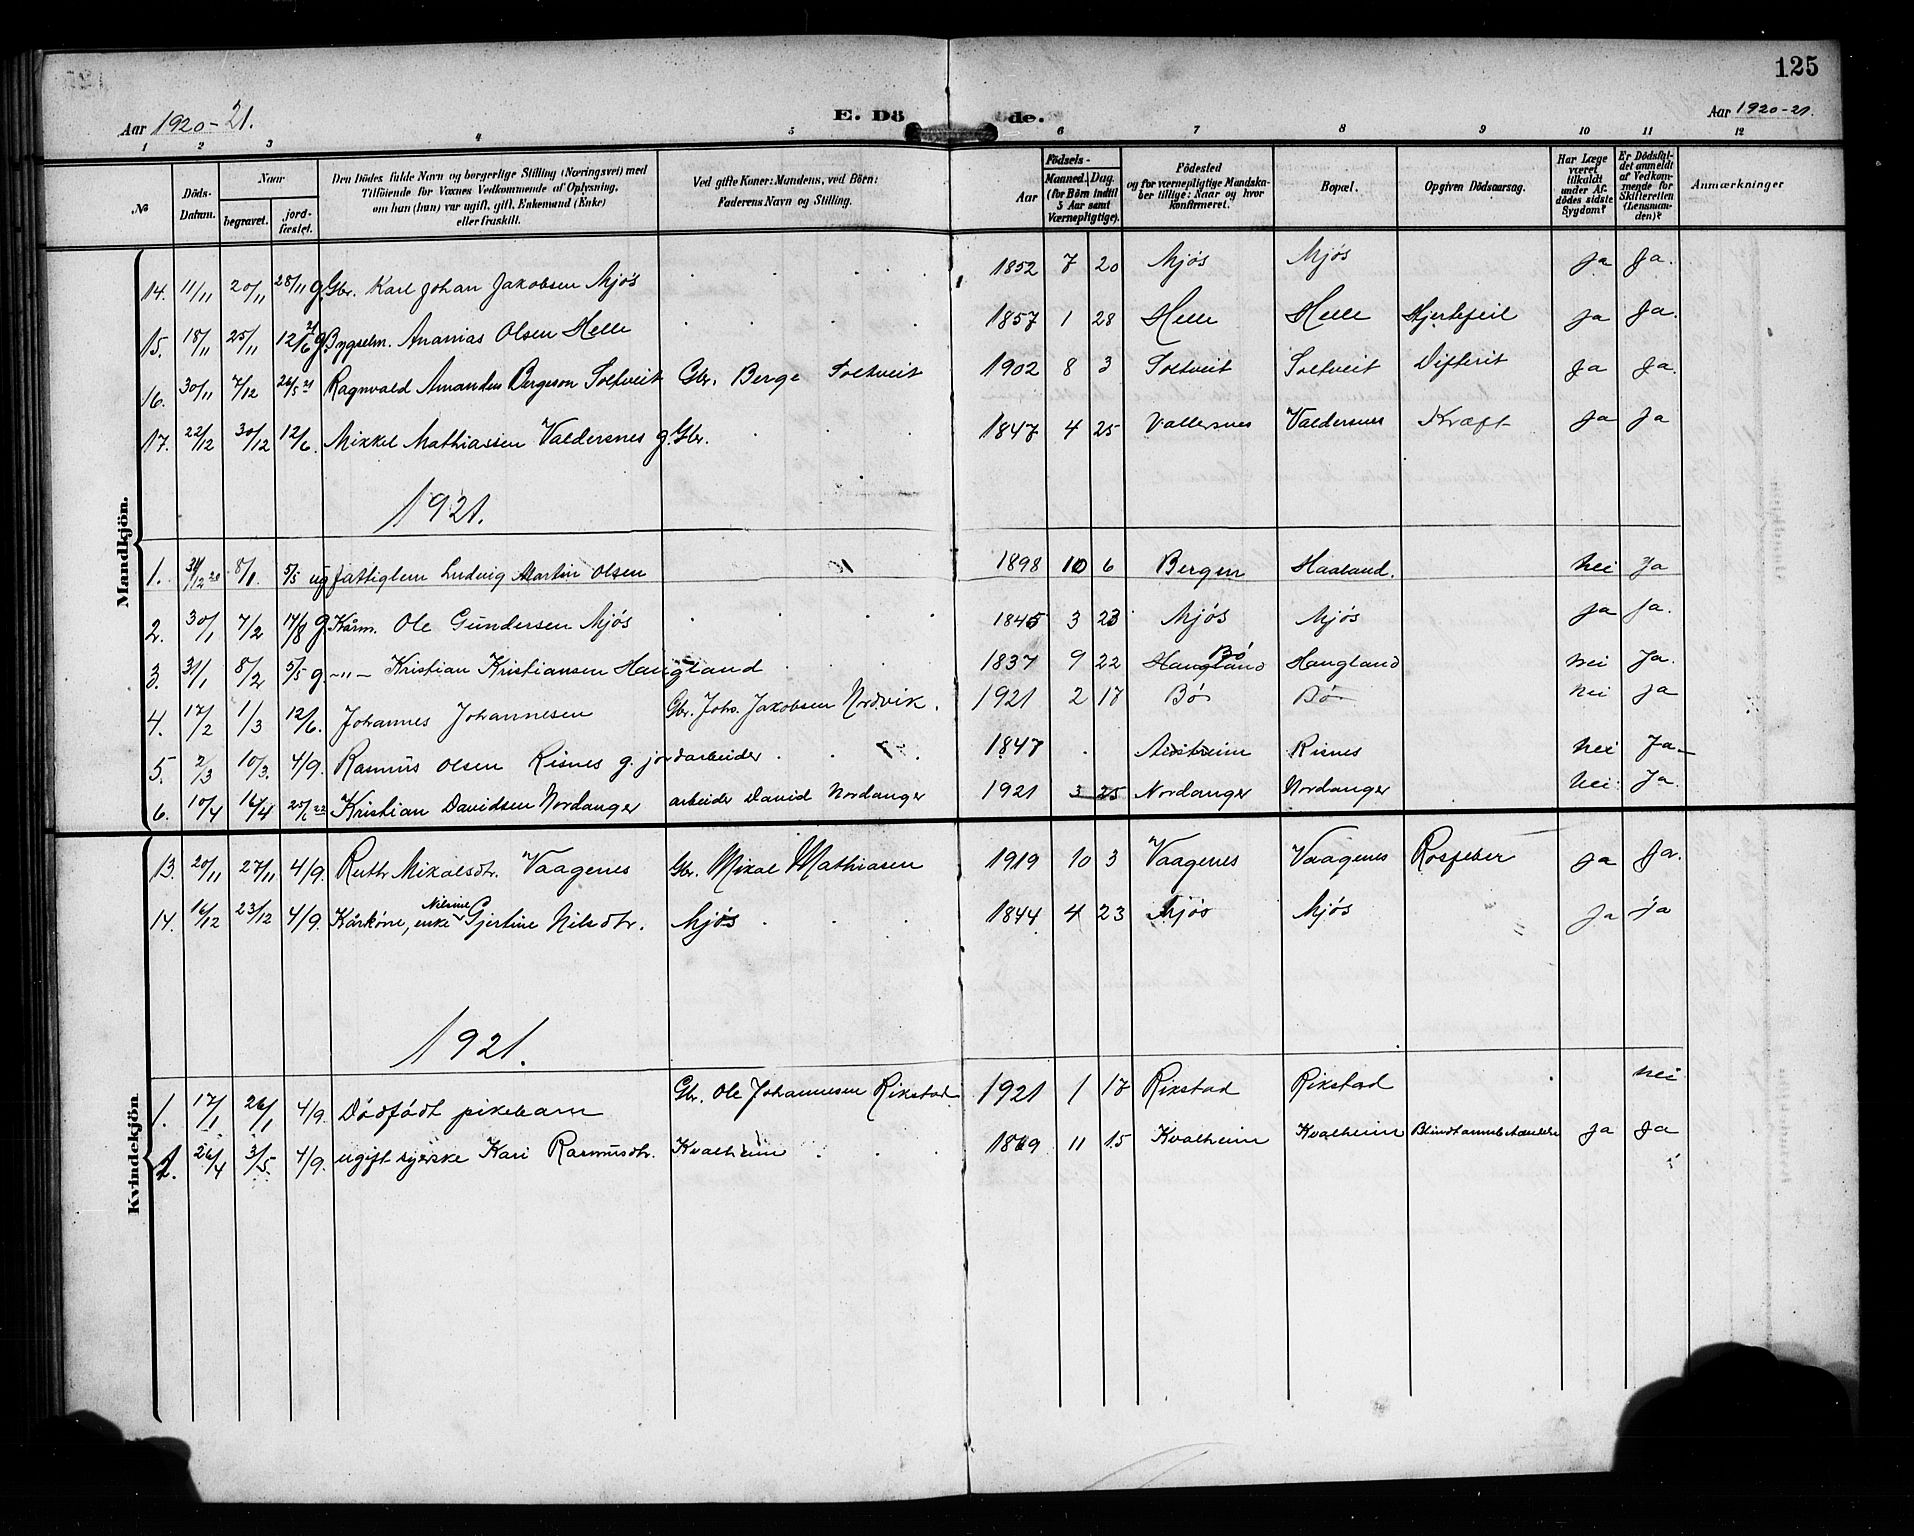 125
Aar 1920-21. E. Dö de. Aar 1920-21.
1 2 3 4 5 6 7 8 9 10 11 12
No Döds-Datum. Naar begravet. jord-fæstet. Den Dödes fulde Navn og borgerlige Stilling (Næringsvei) med Tilföiende for Voxnes Vedkommende af Oplysning, om han (hun) var ugift, gift, Enkemand (Enke) eller fraskilt. Ved gifte Koner: Mandens, ved Börn: Faderens Navn og Stilling. Födsels- Aar Maaned. Dag. (for Börn indtil 5 Aar samt Værnepligtige). Födested og for værnepligtige Mandska-ber tillige: Naar og hvor konfirmeret. Bopæl. Opgiven Dödsaarsag. Har Læge været tilkaldt under Af-dödes sidste Sygdom? Er Dödsfal-det anmeldt af Vedkom-mende for Skifteretten (Lensman-den)? Anmærkninger
Mandkjön.
14. 11/11 20/11 28/11 g. Gbr. Karl Johan Jakobsen Mjøs 1852 7 20 Mjøs Mjøs ja Ja.
15. 18/11 25/11 12/6 21 g. Bygselm. Ananias Olsen Helle 1857 1 28 Helle Helle Hjertefeil ja Ja.
16. 30/11 7/12 26/5 21 Ragnvald Amandus Bergeson Soltveit Gbr. Berge Soltveit 1902 8 3 Soltveit Soltveit Difterit ja Ja.
17. 22/12 30/12 12/6. Mikkel Mathiassen Valdersnes g. Gbr. 1847 4 25 Vallersnes Valdersnes Kræft ja Ja
1921.
1. 31/12 20 8/1. 5/5 ug fattiglem Ludvig Martin Olsen 1898 10 6 Bergen Haaland. nei Ja
2. 30/1 7/2 14/8 g Kårm. Ole Gundersen Mjøs 1845 3 23 Mjøs Mjøs ja ja.
3. 31/1 8/2 5/5 g. -"- Kristian Kristiansen Haugland 1837 9 22 Haugland Bö Haugland nei Ja.
4. 17/2 1/3 12/6. Johannes Johannesen Gbr. Johs. Jakobsen Nordvik. 1921 2 17 Bø Bø nei ja
5. 2/3 10/3. 4/9. Rasmus Olsen Risnes g. jordarbeider 1847 Austrheim Risnes nei Ja
6. 10/4 16/4 25/6 22 Kristian Davidsen Nordanger arbeider David Nordanger 1921 3 25 Nordanger Nordanger nei Ja.
Kvindekjön
13. 20/11 27/11 4/9. Ruth Mikalsdtr. Vaagenes Gbr. Mikal Mathiasen 1919 10 3 Vaagenes Vaagenes Rosfeber ja Ja.
14. 16/12 23/12 4/9. Kårkone, enke Nilsine Gjertine Nilsdtr. Mjøs 1844 4 23 Mjøs Mjøs Ja ja
1921.
1. 17/1 26/1 4/9. Dödfödt pikebarn Gbr. Ole Johannesen Rikstad. 1921 1 17 Rikstad Rikstad nei
2. 26/4 3/5 4/9. ugift syerske Kari Rasmusdtr. Kvalheim 1869 11 15 Kvalheim Kvalheim ja Ja